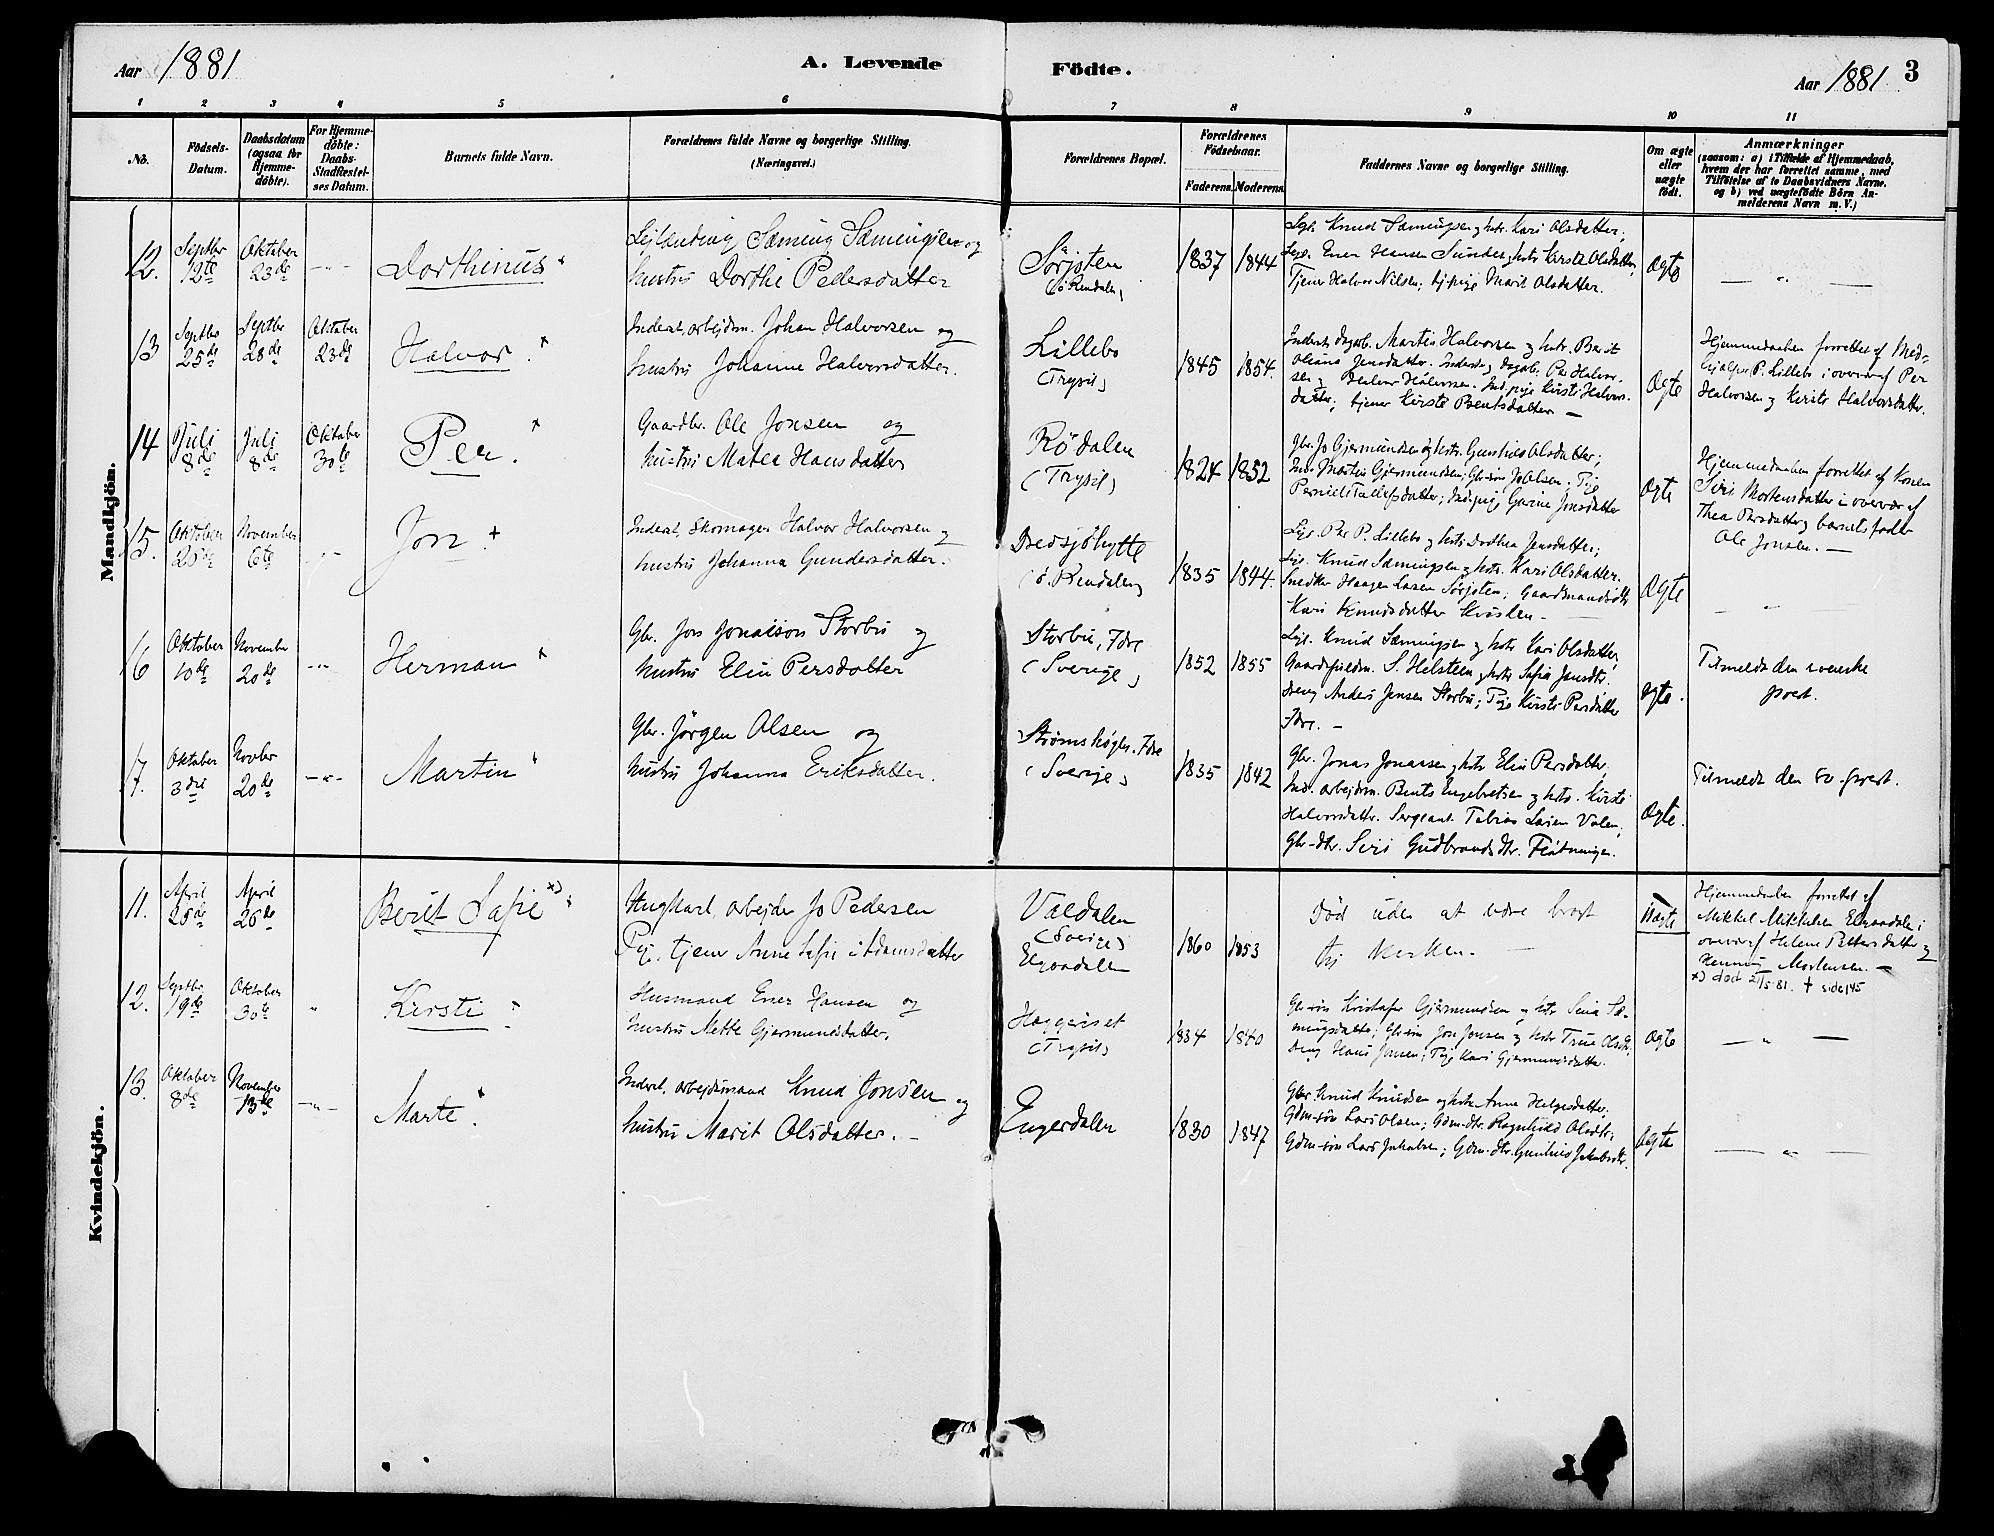 Aar 1881
A. Levende
Födte.
Aar 1881
3
1 2 3 4 5 6 7 8 9 10 11
No.
Födsels-
Datum.
Daabsdatum
(ogsaa for
Hjemme-
döbte).
For Hjemme-
döbte:
Daabs-
Stadfæstel-
ses Datum.
Barnets fulde Navn.
Forældrenes fulde Navne og borgerlige Stilling.
(Næringsvei.)
Forældrenes Bopæl.
Forældrenes
Födselsaar.
Faderens. Moderens.
Faddernes Navne og borgerlige Stilling.
Om ægte
eller
uægte
födt.
Anmærkninger
(saasom: a) i Tilfælde af Hjemmedaab,
hvem der har forrettet samme, med
Tilföielse af to Daabsvidners Navne.
og b) ved uægtefödte Börn An-
melderens Navn m. V.)
Mandkjön.
12.
Septbr
12te
Oktober
23de
Dorthinus
Sæming Sæmingsen og
hustru Dorthe Pedersdatter
Sörjsten
(ö. Rendalen)
1837 1844
Lejl. Knud Sæmingsen & hstr. Kari Olsdatter;
Ener Hansen Sundet & hstr Kirsti Olsdatter,
Tjener Halvor Nilsen; Marit Olsdatter.
Ægte
13
Septbr
25de
Septbr
28de
Oktober
23de
Halvor.
Inderst, arbejdsm. Johan Halvorsen og
hustru Johanne Halvorsdatter.
Lillebo
(Trysil)
1845 1854.
Inderst, dagarb. Martin Halvorsen & hstr. Berit
Oliana Jensdatter. Inderst, dagarb. Per Halvor-
sen Halvorsen. Ind. pige Kirsti Halvors-
datter; tjener Kirsti Bentsdatter —
Ægte
Hjemmedaaben forrettet af Med-
hjælper P. Lillebo i overvær af Per
Halvorsen & Kirsti Halvorsdatter.
14
Juli
8de
Juli
8de
Oktober
30te
Per.
Gaardbr. Ole Jonsen og
hustru Matea Hansdatter
Rödalen
(Trysil)
1824 1852
Gbr. Jo Gjermundsen & hstr. Gunhild Olsdatter;
Ind. Martin Gjermundsen; Gbr-sön Jo Olsen; Pige
Pernille datter; Ind. pige Gurine Jonsdatter
Ægte
Hjemmedaaben forrettet af Konen
Siri Mortensdatter i overvær af
Thea Persdatter & barnets fader
Ole Jonsen. —
15.
Oktober
25de
November
6te
Jon.
Inderst, Skomager Halvor Halvorsen &
hustru Johanna Gundersdatter.
Bredsjöhytte
(ö. Rendalen)
1835 1844.
Lejl. Per P. Lillebo & hstr. Dorthea Jensdatter;
Lejl. Knud Sæmingsen & hstr. Kari Olsdatter.
Snedker Haagen Larsen Sörjsten; Gaardmandsdtr
Kari Knudsdatter Kvisken —
Ægte
16
Oktober
10de
November
20de
Herman
Gbr. Jon Jonasson Storbu og
hustru Elin Persdatter
Storbu, Idre
(Sverige)
1852 1855
Lejl. Knud Sæmingsen & hstr Kari Olsdatter,
S. Helsteen & hstr Sofia Jensdtr.
Dreng Anders Jensen Storbu; Pige Kirsti Persdatter
Idre. —
Ægte.
Tilmeldt den svenske
prest.
17.
Oktober
3die
Novbr
20de
Martin
Gbr. Jörgen Olsen og
hustru Johanna Eriksdatter.
Idre
(Sverige)
1835 1842
Gbr. Jonas Jonassen & hstr Elin Persdatter,
Ind. arbejdsm. Bents Engebretsen & hstr. Kirsti
Halvorsdattr. Sergeant Tobias Larsen Valen,
Gbr-dtr. Siri Gudbrandsdtr. Flötningen.
Ægte.
Tilmeldt den sv. prest.
Kvindekjön.
11.
April
25de
April
26de
Berit Sofie x)
Ungkarl, arbejder Jo Pedersen
Pige, tjener Anne Sofie Adamsdatter
Væedalen
(Sverige)
Elgaadalen
1860 1853
Död uden at være bragt
til kirken. —
Uægte
Hjemmedaaben forrettet af
Mikkel Mikkelsen Elgaadalen i
overvær af Helene Pettersdatter &
Henning Mortensen. —
x) död 2/5 81. † side 145
12.
Septbr.
19de
Oktober
30te
Kirsti
Husmand Ener Hansen og
hustru Mette Gjermundsdatter.
Haggeriset
(Trysil)
1834 1840
Gbr-sön Kristofer Gjermundsen & hstr Sena Sæ-
mingsdatter; Gbr-sön Jon Jonsen & hstr Trine Olsdtr.
Dreng Hans Jonsen; Pige Kari Gjermundsdatter.
Ægte
13.
Oktober
8de
November
13de
Marte.
Inderst. arbejdsmand Knud Jonsen og
hustru Marit Olsdatter. —
Engerdalen
1830 1847
Gbr. Knud Knudsen & hstr Anne Helgesdatter;
Gdm-sön Lars Olsen; Gdm-dtr. Ragnhild Olsdtr;
Gdm-sön Lars Jakobsen; Gdm.-dtr. Gunhild Jakobsdtr.
Ægte